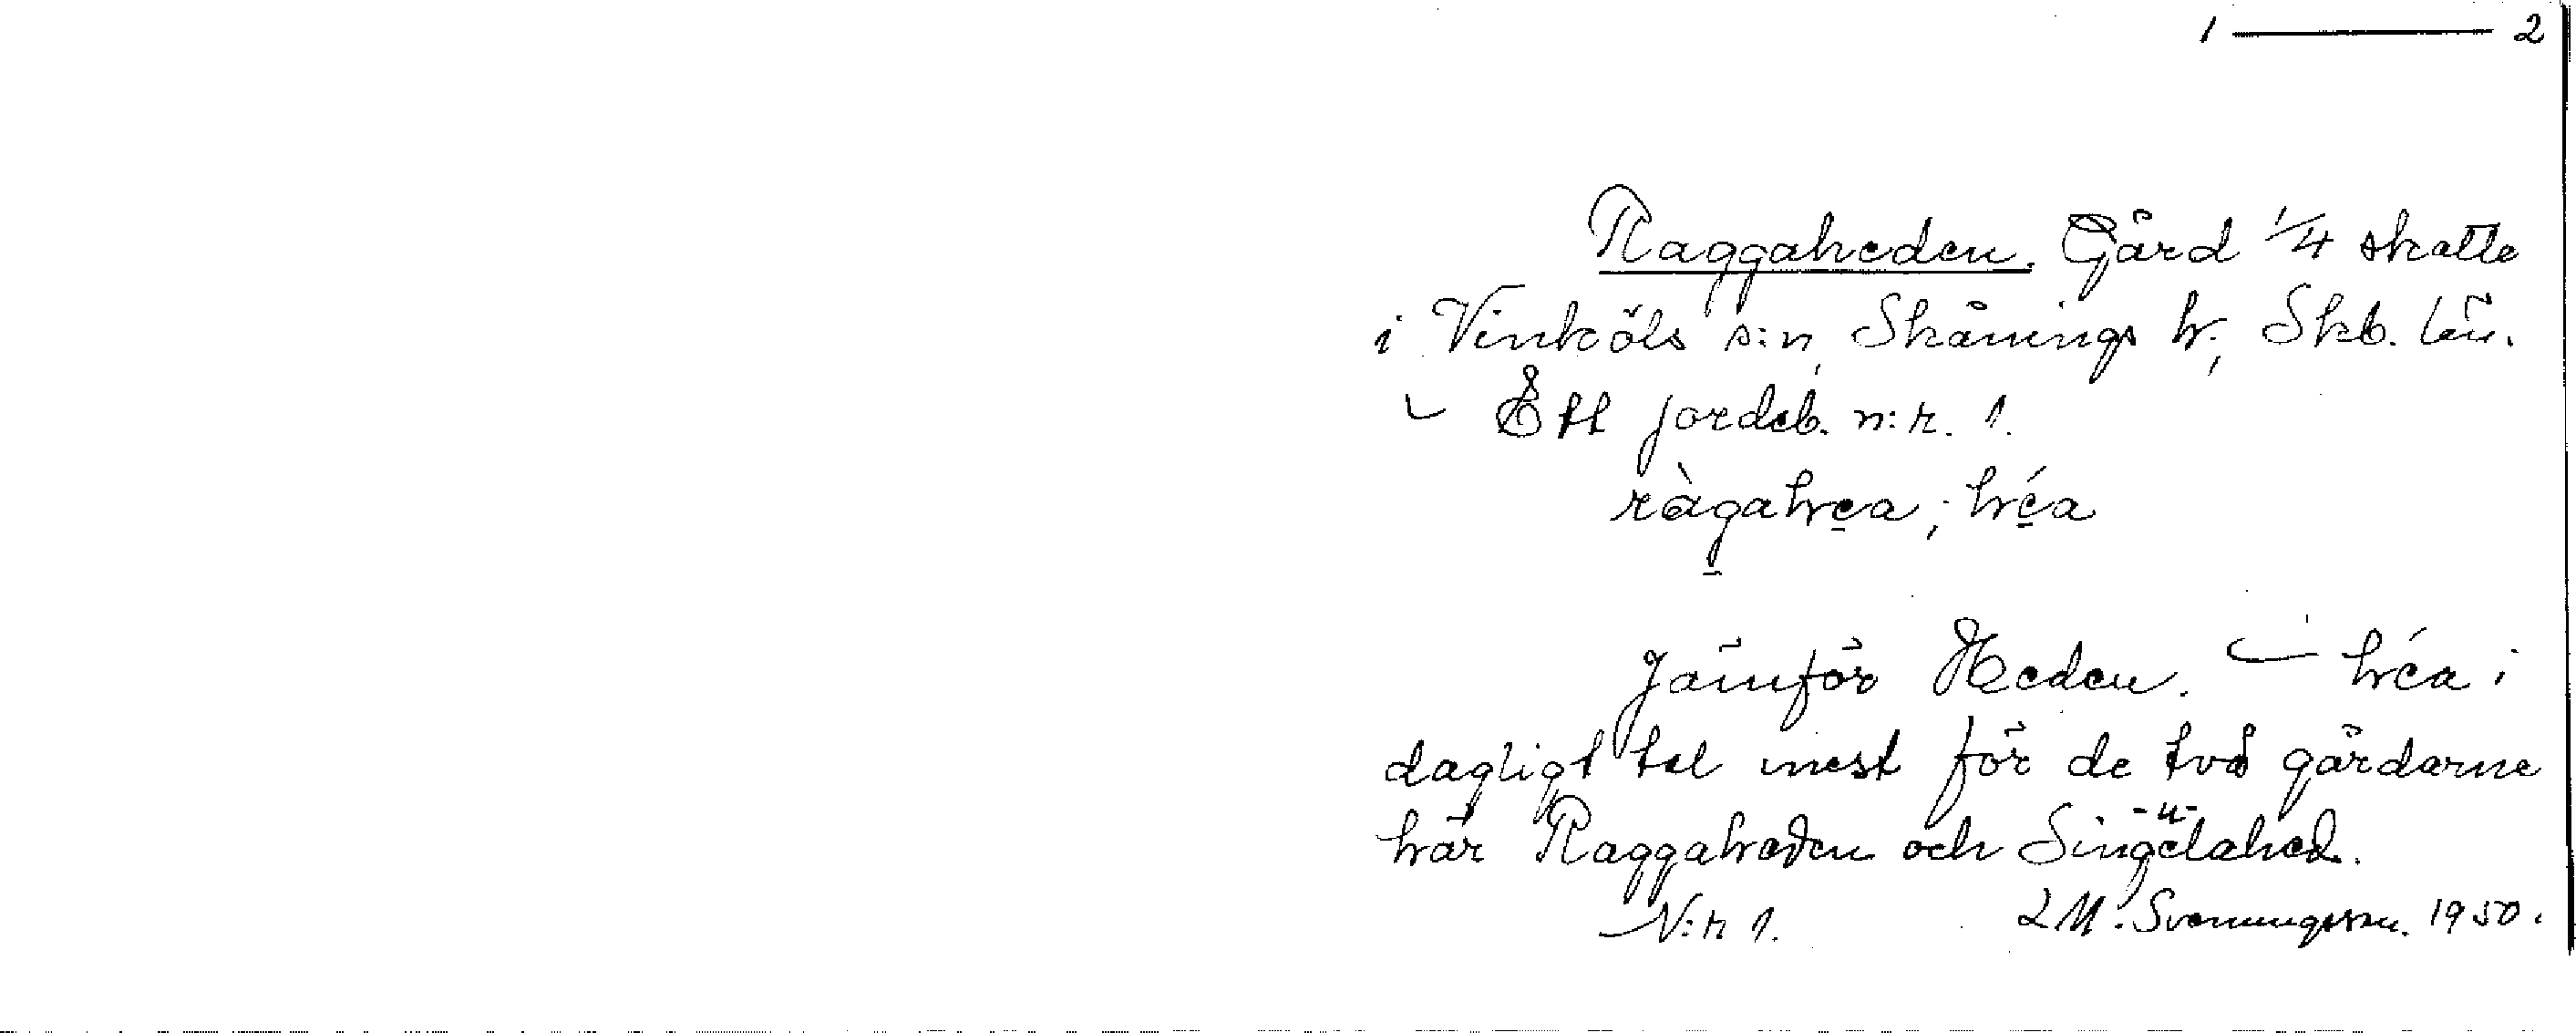 1 — 2
Raggaheden. Gård 1/4 skatte
i Vinköls s:n, Skånings h., Skb. län.
– Ett jordeb. n:r. 1.
ràgahea; héa
Jämför Heden. – héa i
dagligt tal mest för de två gårdarne
här Raggaheden och Singelahed.
-u-
N:r 1. L M. Svenungsson. 1950.